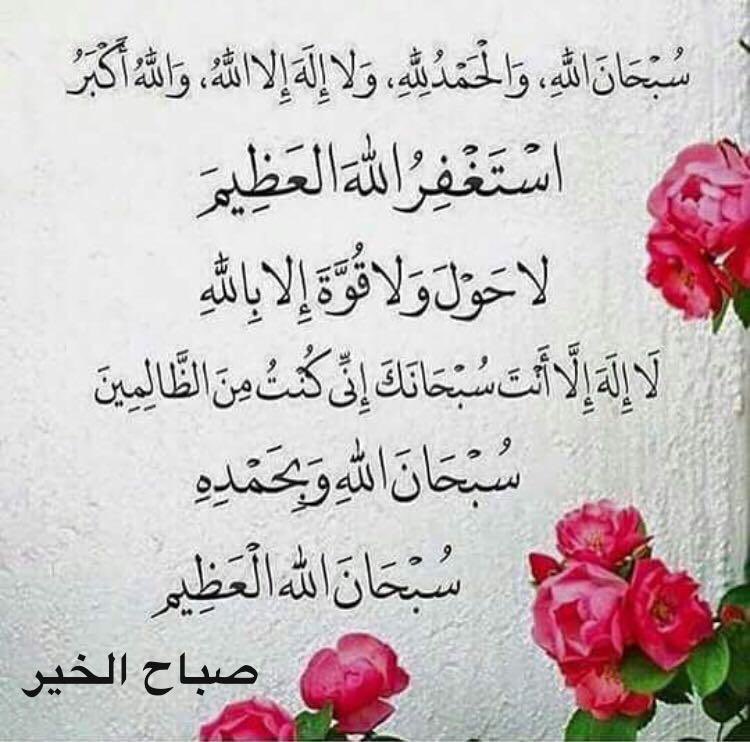 سُبْحَانَ اللهِ، وَالْحَمْدُ لِلّٰهِ، وَلا إِلَهَ إِلا اللهُ، وَاللهُ أَكْبَرُ
اسْتَغْفِرُ اللهَ العَظِيمَ
لا حَوْلَ وَلا قُوَّةَ إِلا بِاللهِ
لَا إِلَهَ إِلَّا أَنْتَ سُبْحَانَكَ إِنِّي كُنْتُ مِنَ الظَّالِمِينَ
سُبْحَانَ اللهِ وَبِحَمْدِهِ
سُبْحَانَ اللهِ الْعَظِيمِ
صباح الخير